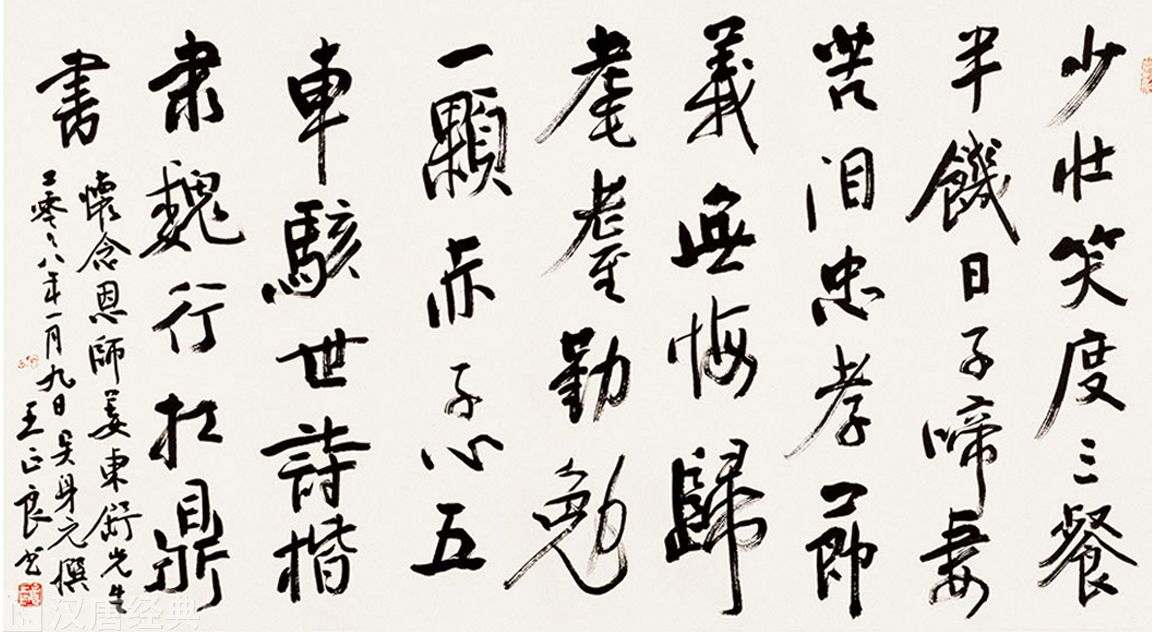 少壮笑度三餐
半饑日子啼妻
苦泪忠孝節
義無悔歸
耄耋勤勉
一顆赤子心五
車駭世詩楷
隶魏行扛鼎
書
懷念恩師姜東舒先生
二零零八年一月九日吴身元撰
王正良书
汉唐经典